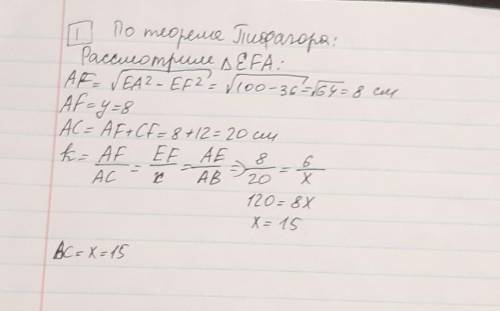 1 По теореме Пифагора:
Рассмотрим △EFA:
AF = √EA² - EF² = √100 - 36 = √64 = 8 см
AF = y = 8
AC = AF + CF = 8 + 12 = 20 см
k = AF/AC = EF/x = AE/AB ⇒ 8/20 = 6/x
120 = 8x
x = 15
BC = x = 15